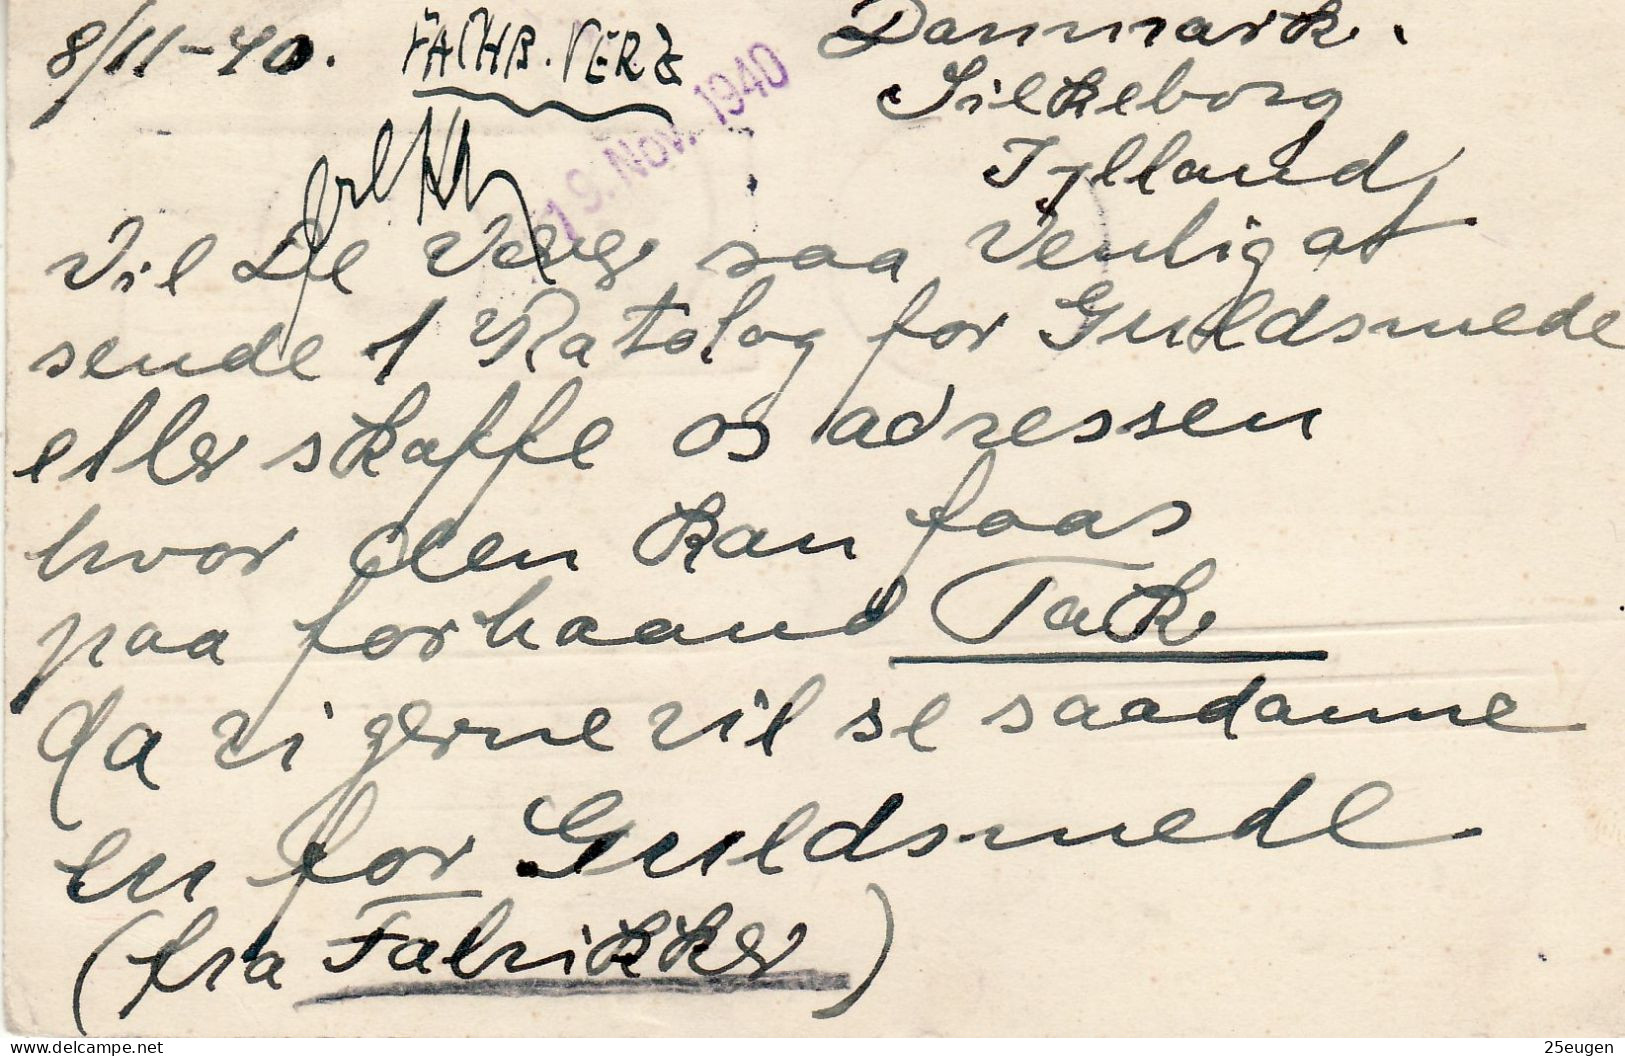 8/11-40. FACHB. VERZ Danmark.
19. Nov. 1940
Silkeborg
Jylland
Vil De Være saa Venlig at
sende 1 Katalog for Guldsmede
eller skaffe os adressen
hvor den kan faas
paa forhaand Tak
da vi gerne vil se saadanne
en for Guldsmede
(fra Fabrikker)
delcampe.net
25eugen